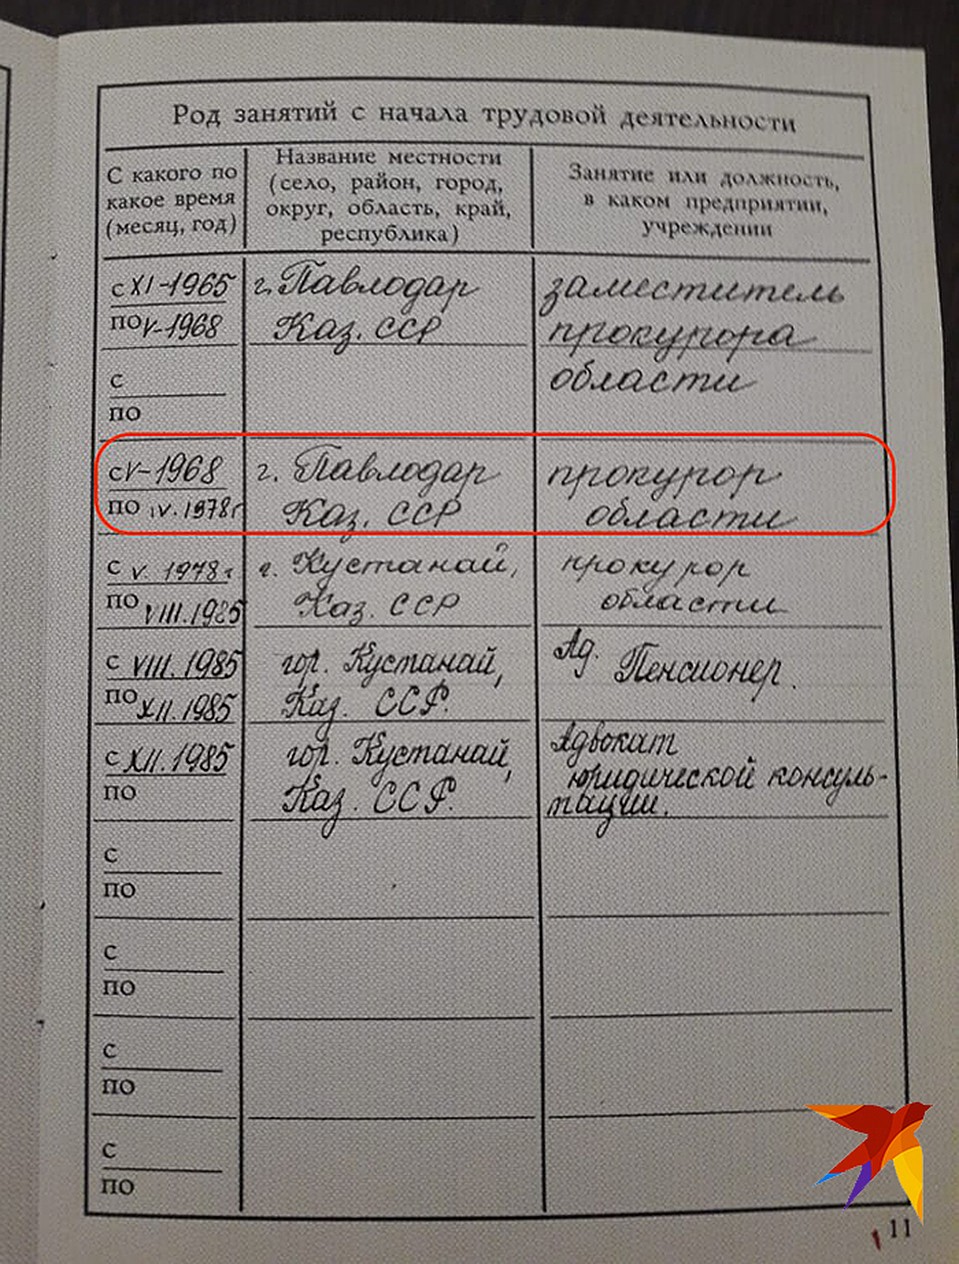 Род занятий с начала трудовой деятельности
С какого по
какое время
(месяц, год)
Название местности
(село, район, город,
округ, область, край,
республика)
Занятие или должность,
в каком предприятии,
учреждении
с XI-1965
по V-1968
г. Павлодар
Каз. ССР
заместитель
прокурора
области
с
по
с V-1968
по IV.1978г
г. Павлодар
Каз. ССР
прокурор
области
с V. 1978г
по VIII.1985
г. Кустанай,
Каз. ССР
прокурор
области
с VIII. 1985
по XII.1985
гор. Кустанай,
Каз. ССР.
Ад. Пенсионер.
с XII.1985
по
гор. Кустанай,
Каз. ССР.
Адвокат
юридической консуль-
тации.
с
по
с
по
с
по
с
по
11